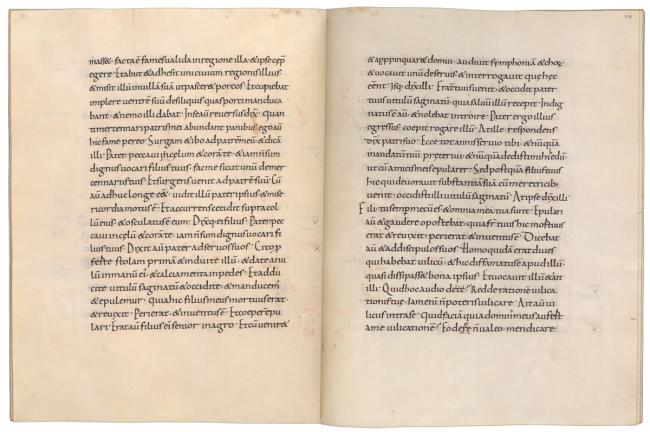 massæ · facta ẽ fames ualida in regione illa · & ipse cep̃
egere · Et abiit & adhesit uni ciuium regionis illius ·
& misit illũ in uillã suã ut pasceret porcos · Et cupiebat
implere uentrẽ suũ de siliquis quas porci manduca
bant · & nemo illi dabat · In se aũ reuersus dx̃ · Quan
ti mercennarii patris mei abundant panibus · ego aũ
hic fame pereo · Surgam & ibo ad patrẽ meũ · & dicã
illi · Pater peccaui in cęlum & corã te · & iam ñ sum
dignus uocari filius tuus · fac me sicut unũ de mer
cennariis tuis · Et surgens uenit ad patrẽ suũ · Cũ
aũ adhuc longe eẽ · uidit illũ pater ipsius · & mise
ricordia motus ẽ · Et accurrens cecidit supra coł
lũ eius · & osculatus ẽ eum · Dx̃q ei filius · Pater pec
caui in cęlũ & corã te · iam ñ sum dignus uocari fi
lius tuus · Dixit aũ pater ad seruos suos · Cito p
ferte stolam primã & induite illũ · & date anu
lũ in manũ ei · & calciamenta in pedes · Et addu
cite uitulũ saginatũ & occidite · & manducem
& epulemur · quia hic filius meus mortuus erat
& reuixit · Perierat · & inuentus ẽ · Et coeper epu
lari · Erat aũ filius ei senior in agro · Et cũ uenir&
& appropinquar& domui · audiuit symphoniã & chor ·
& uocauit unũ de seruis & interrogauit quę hęc
eent · Isq dix illi · Frat tuus uenit · & occidit pater
tuus uitulũ saginatũ · quia saluũ illũ recepit · Indig
natus ẽ aũ · & nolebat introire · Pater ergo illius
egressus · coepit rogare illũ · At ille respondens
dx̃ patri suo · Ecce tot annis seruio tibi · & nũquã
mandatũ tuũ preteriui · & nũquã dedisti m̃ hedũ
ut cũ amicis meis epularer · Sed postquã filius tuus
hic qui deuorauit substantiã suã cũ meretricib
uenit · occidisti illi uitulũ saginatũ · At ipse dix illi ·
Fili tu semp mecũ es · & omnia mea tua sunt · Epulari
aũ & gaudere oportebat · quia frat tuus hic mortuus
erat & reuixit · perierat & inuentus ẽ · Dicebat
aũ & ad discipulos suos · Homo quidã erat diues
qui habebat uilicũ · & hic diffamatus ẽ apud illũ ·
quasi dissipasset bona ipsius · Et uocauit illũ & ait
illi · Quid hoc audio de te · Redde rationẽ uilica
tionis tuę · Iam eni ñ poteris uilicare · Ait aũ ui
licus intra se · Quid faciã quia dominus meus aufert
a me uilicationẽ · Fodere ñ ualeo · mendicare